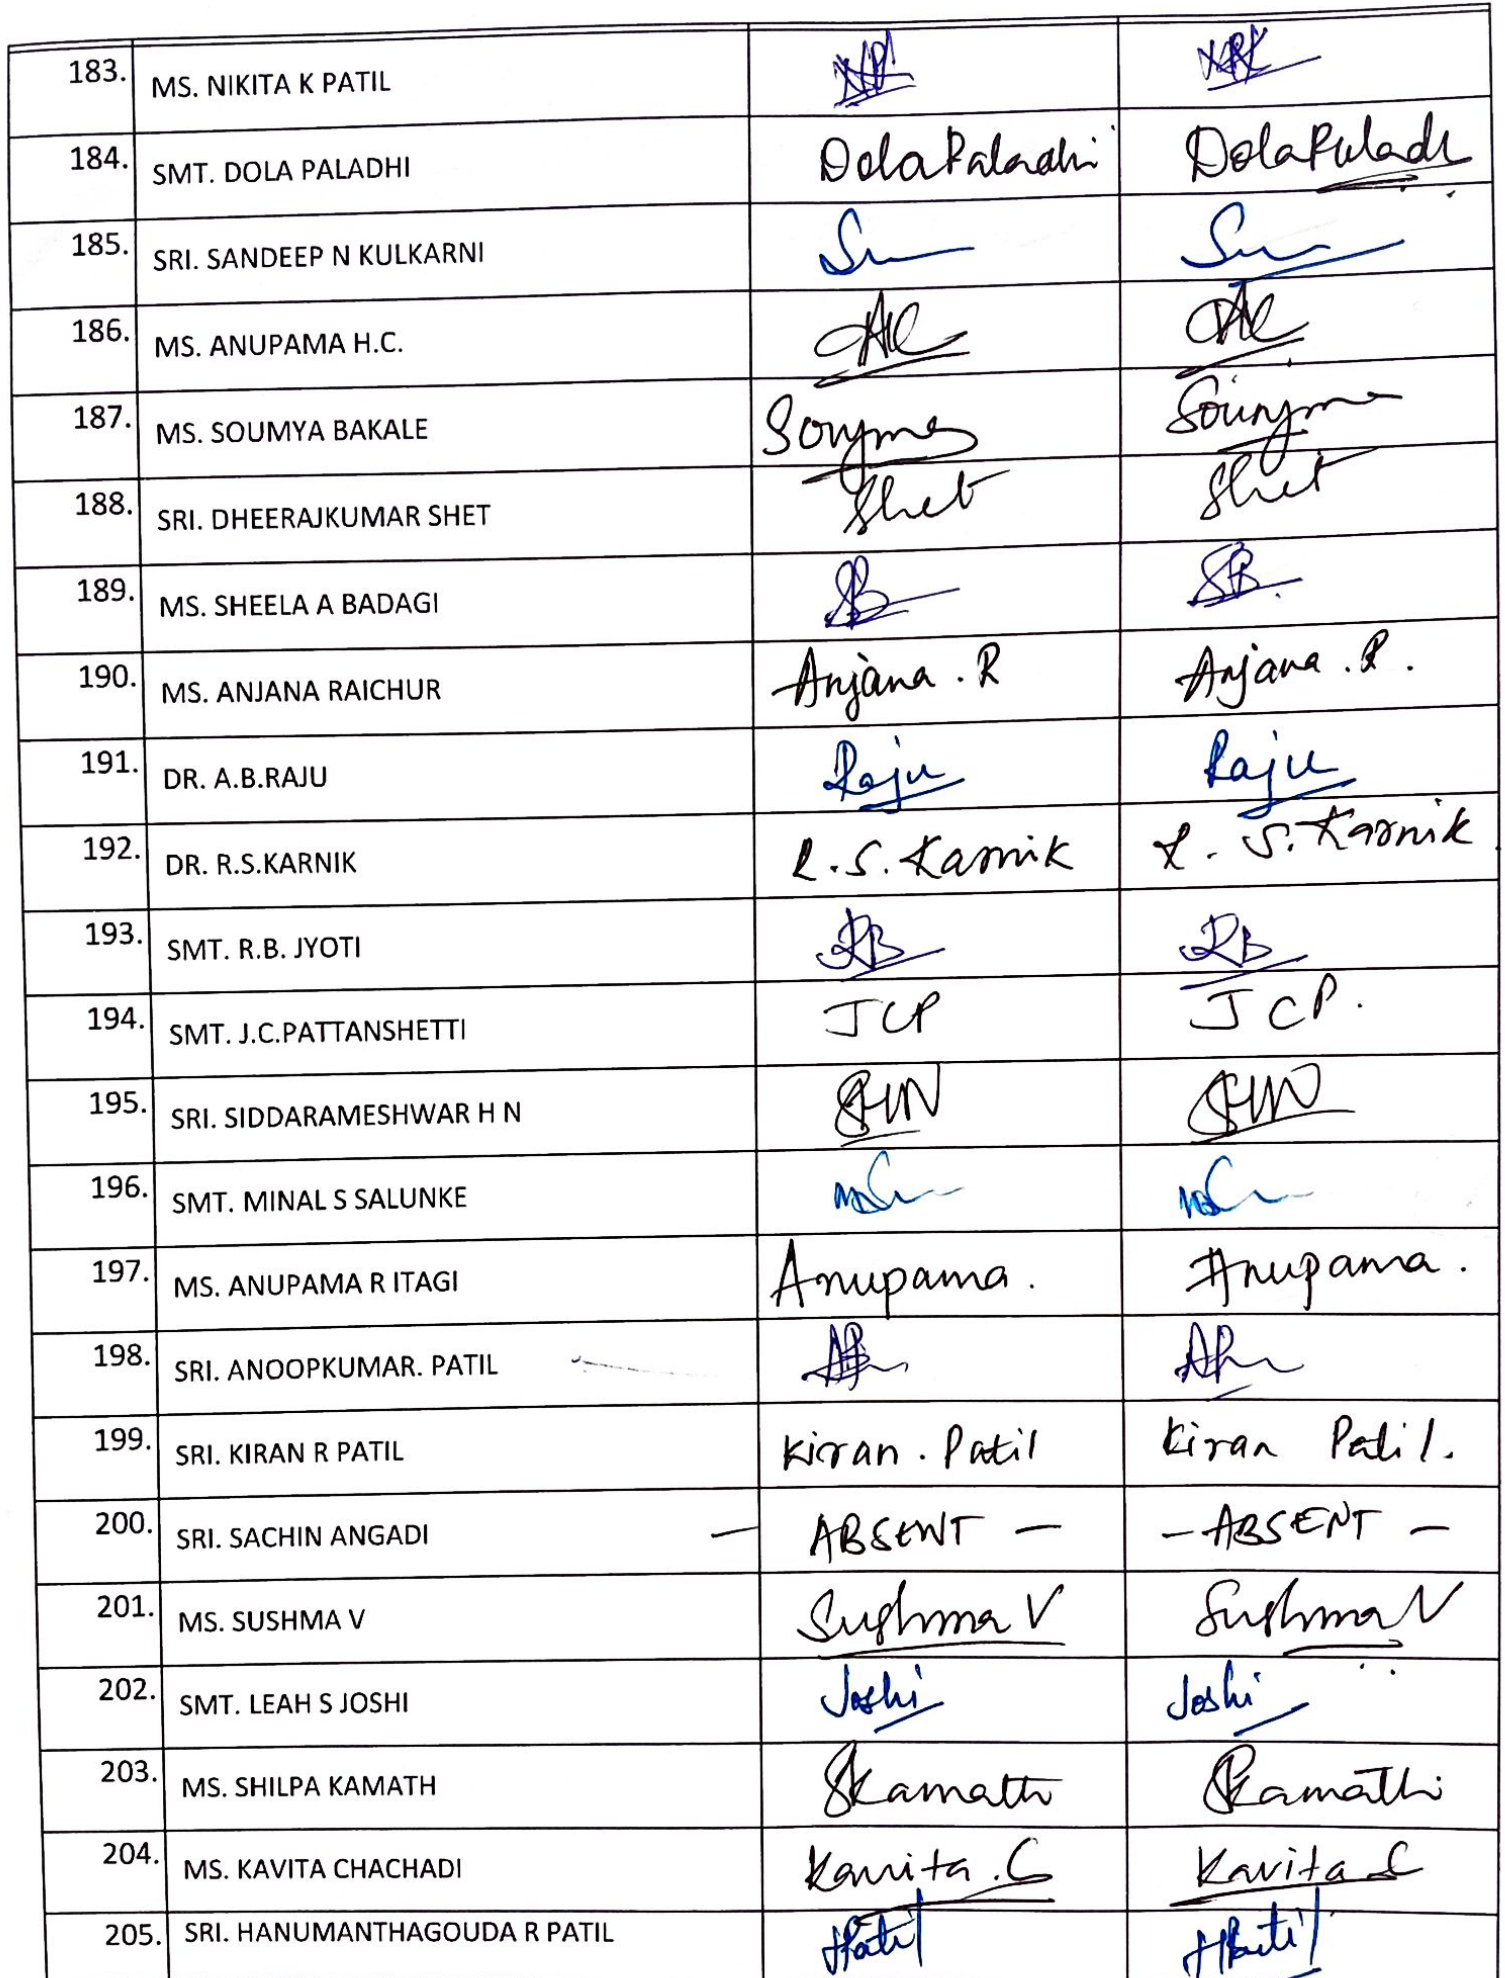 183. MS. NIKITA K PATIL
184. SMT. DOLA PALADHI Dola Paladhi Dola Paladhi
185. SRI. SANDEEP N KULKARNI
186. MS. ANUPAMA H.C.
187. MS. SOUMYA BAKALE
188. SRI. DHEERAJKUMAR SHET Shet Shet
189. MS. SHEELA A BADAGI SB SB
190. MS. ANJANA RAICHUR Anjana . R Anjana . R .
191. DR. A.B.RAJU Raju Raju
192. DR. R.S.KARNIK R.S. Karnik R. S. Karnik
193. SMT. R.B. JYOTI RB RB
194. SMT. J.C.PATTANSHETTI JCP JCP.
195. SRI. SIDDARAMESHWAR H N SHN SHN
196. SMT. MINAL S SALUNKE
197. MS. ANUPAMA R ITAGI Anupama . Anupama .
198. SRI. ANOOPKUMAR. PATIL
199. SRI. KIRAN R PATIL Kiran . Patil Kiran Patil .
200. SRI. SACHIN ANGADI — ABSENT — — ABSENT —
201. MS. SUSHMA V Sushma V Sushma V
202. SMT. LEAH S JOSHI Joshi Joshi
203. MS. SHILPA KAMATH SKamath SKamath
204. MS. KAVITA CHACHADI Kavita . C Kavita C
205. SRI. HANUMANTHAGOUDA R PATIL HPatil HPatil